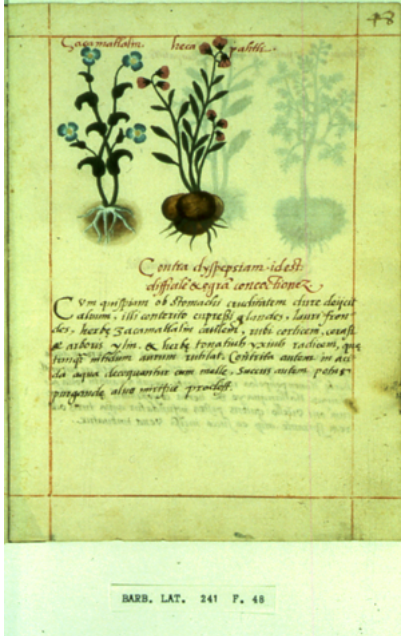 48
Çacamatlalin. heca pahtli.
Contra dyspepsiam idest
difficilē & egrā concoctionez
Cvm quispiam ob stomachi cruditatem dure deijcit
alvum, illi conterito cupressi glandes, lauri fron
des, herbę Zacamatlalin caulem, rubi corticem, cerasi
& arboris ylin, & herbę tonatiuh yxiuh radicem, quę
nitidum aurum rutilat. Contrita autem in aci
da aqua decoquantur cum melle. Succus autem potus
purgandę alvo mirificę prodest.
BARB. LAT. 241 F. 48